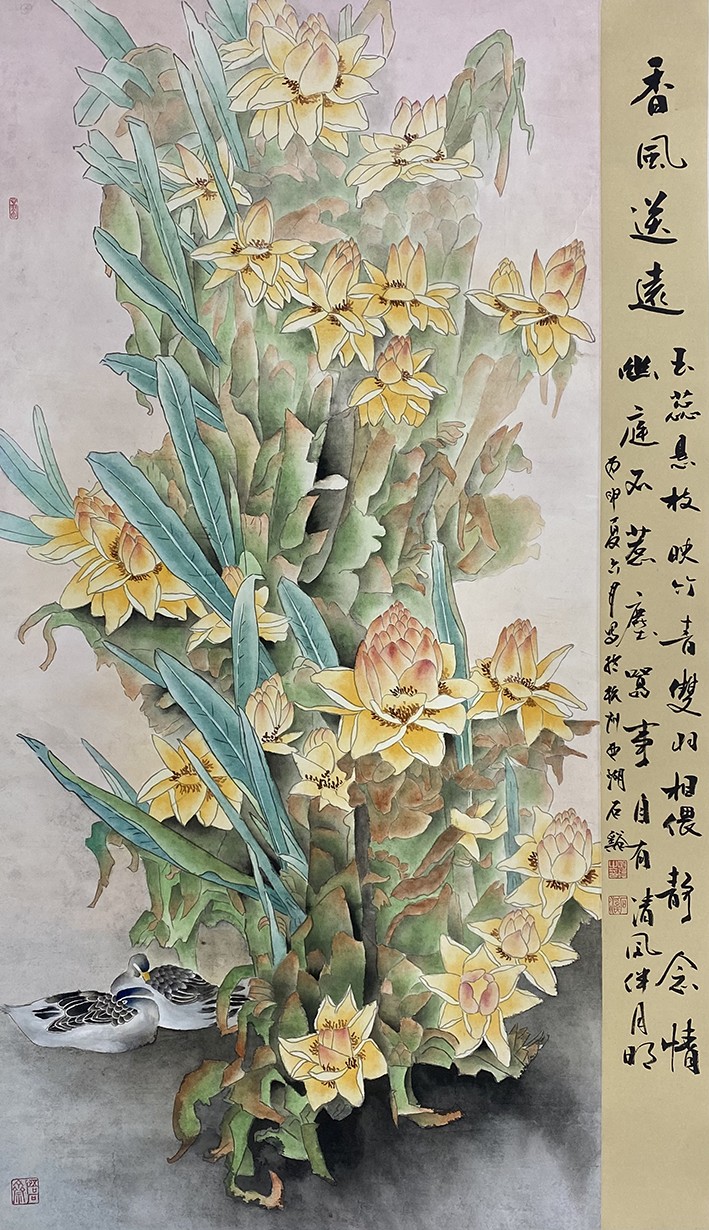 香風送遠
玉蕊悬枝映竹青雙羽相偎静含情
幽庭不惹塵嚣事自有清风伴月明
丙申夏六月写於杭州西湖石谿